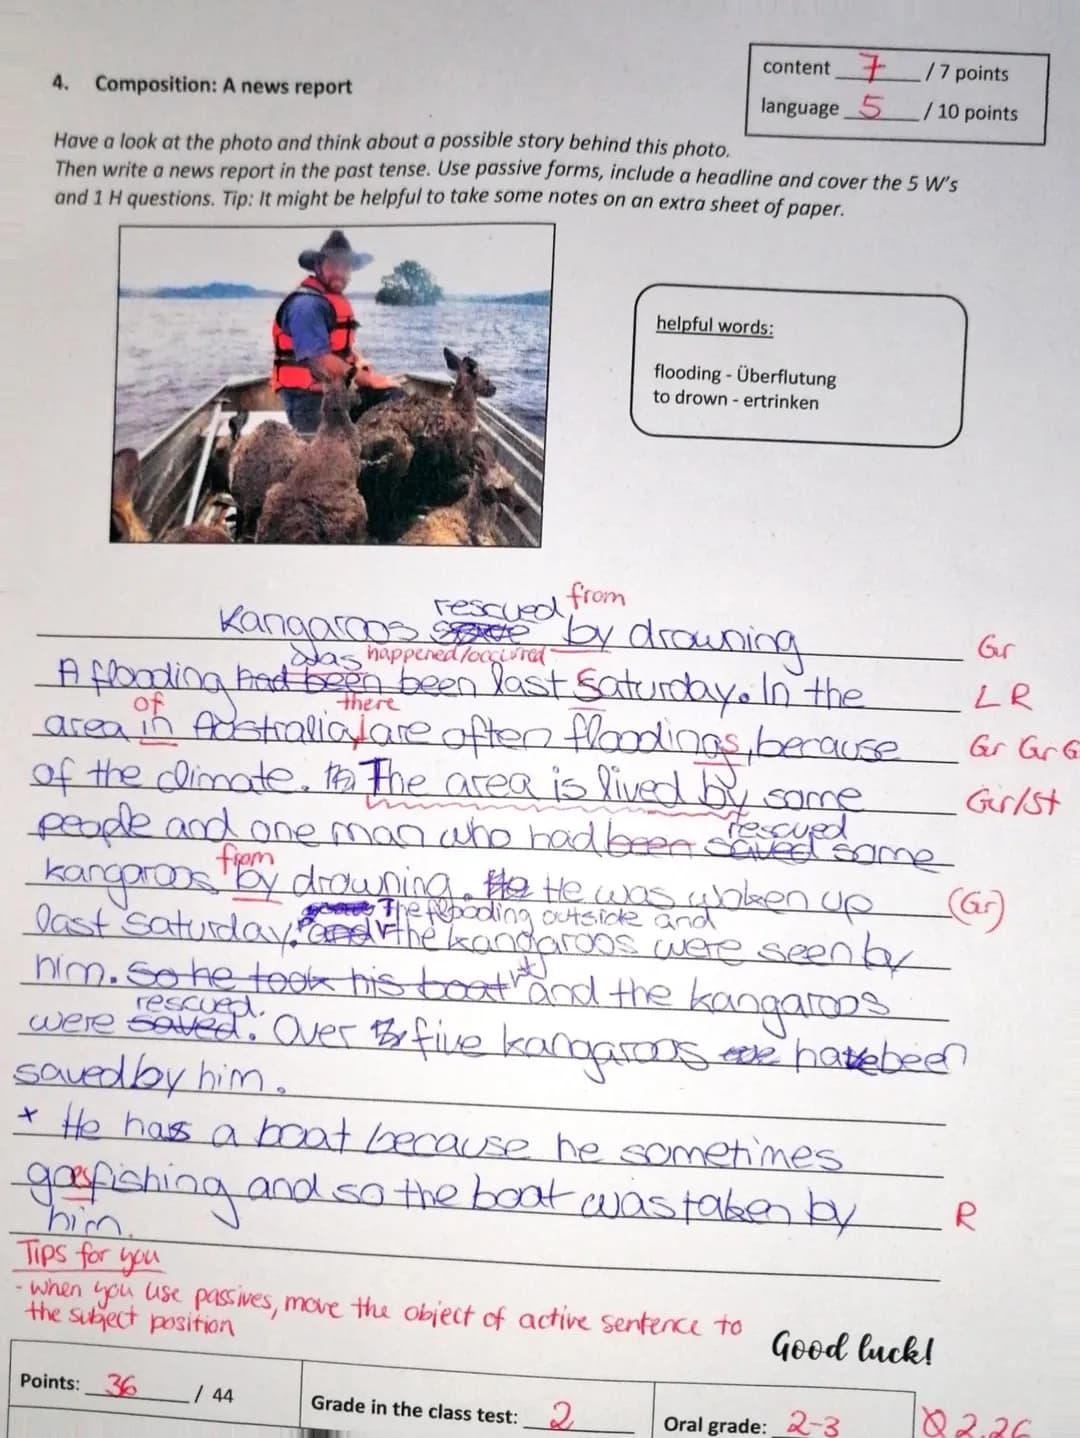 content 7 / 7 points
language 5 / 10 points
4. Composition: A news report
Have a look at the photo and think about a possible story behind this photo.
Then write a news report in the past tense. Use passive forms, include a headline and cover the 5 W's
and 1 H questions. Tip: It might be helpful to take some notes on an extra sheet of paper.
helpful words:
flooding - Überflutung
to drown - ertrinken
rescued from
Kangaroos by drowning Gr
was happened/occurred
A flooding had been been last Saturday. In the L R
of there
area in Australia are often floodings, because Gr Gr G
of the climate. The area is lived by some Gr/St
rescued
people and one man who had been saved some
from
kangaroos by drowning. He was woken up (Gr)
The flooding outside and
last Saturday. and the kangaroos were seen by
him. So he took his boat and the kangaroos
rescued.
were saved. Over five kangaroos have been
saved by him.
* He has a boat because he sometimes
goes fishing and so the boat was taken by R
him.
Tips for you
- When you use passives, move the object of active sentence to
the subject position
Good luck!
Points: 36 / 44
Grade in the class test: 2
Oral grade: 2-3
2.26